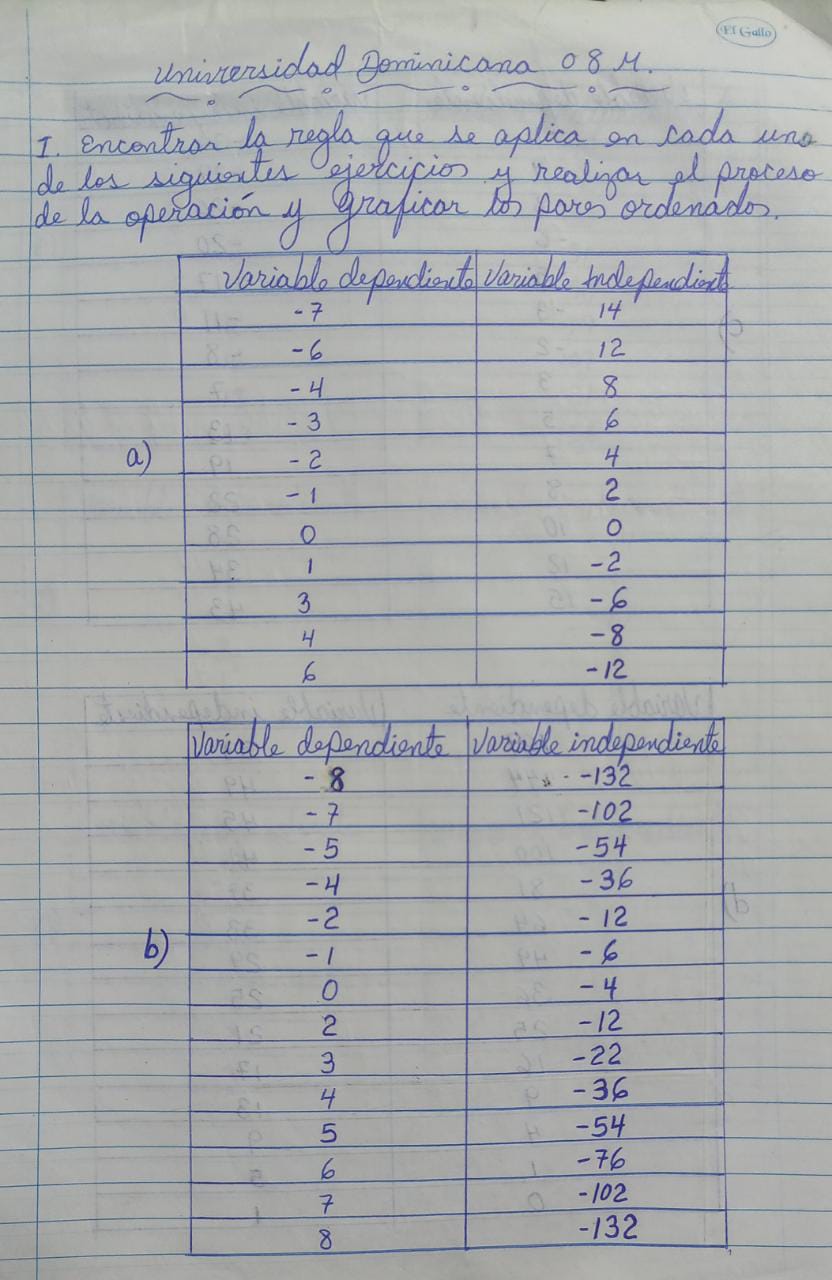 El Gallo
Universidad Dominicana O & M.
I. Encontrar la regla que se aplica en cada uno
de los siguientes ejercicios y realizar el proceso
de la operación y graficar los pares ordenados.
Variable dependiente Variable Independiente
-7 14
-6 12
-4 8
-3 6
a) -2 4
-1 2
0 0
1 -2
3 -6
4 -8
6 -12
Variable dependiente Variable independiente
-8 -132
-7 -102
-5 -54
-4 -36
-2 -12
b) -1 -6
0 -4
2 -12
3 -22
4 -36
5 -54
6 -76
7 -102
8 -132